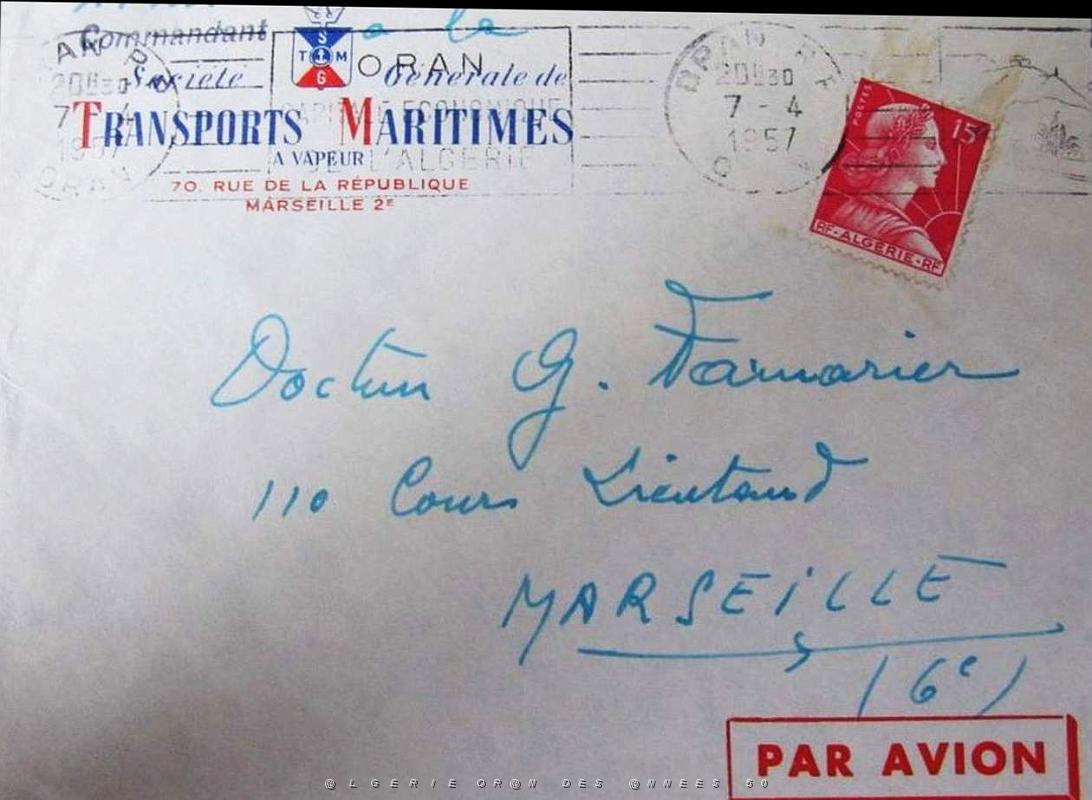 a la
Commandant
S
T M
G
Société Générale de
TRANSPORTS MARITIMES
A VAPEUR
70. RUE DE LA RÉPUBLIQUE
MARSEILLE 2E
ORAN
CAPITALE ECONOMIQUE
DE L'ALGERIE
ORAN RP
20H30
7 - 4
1957
ORAN
ORAN RP
20H30
7 - 4
1957
POSTES
15F
RF-ALGERIE-RF
Docteur G. Farnarier
110 Cours Lieutaud
MARSEILLE
(6e)
PAR AVION
@LGERIE OR@N DES @NNEES 50